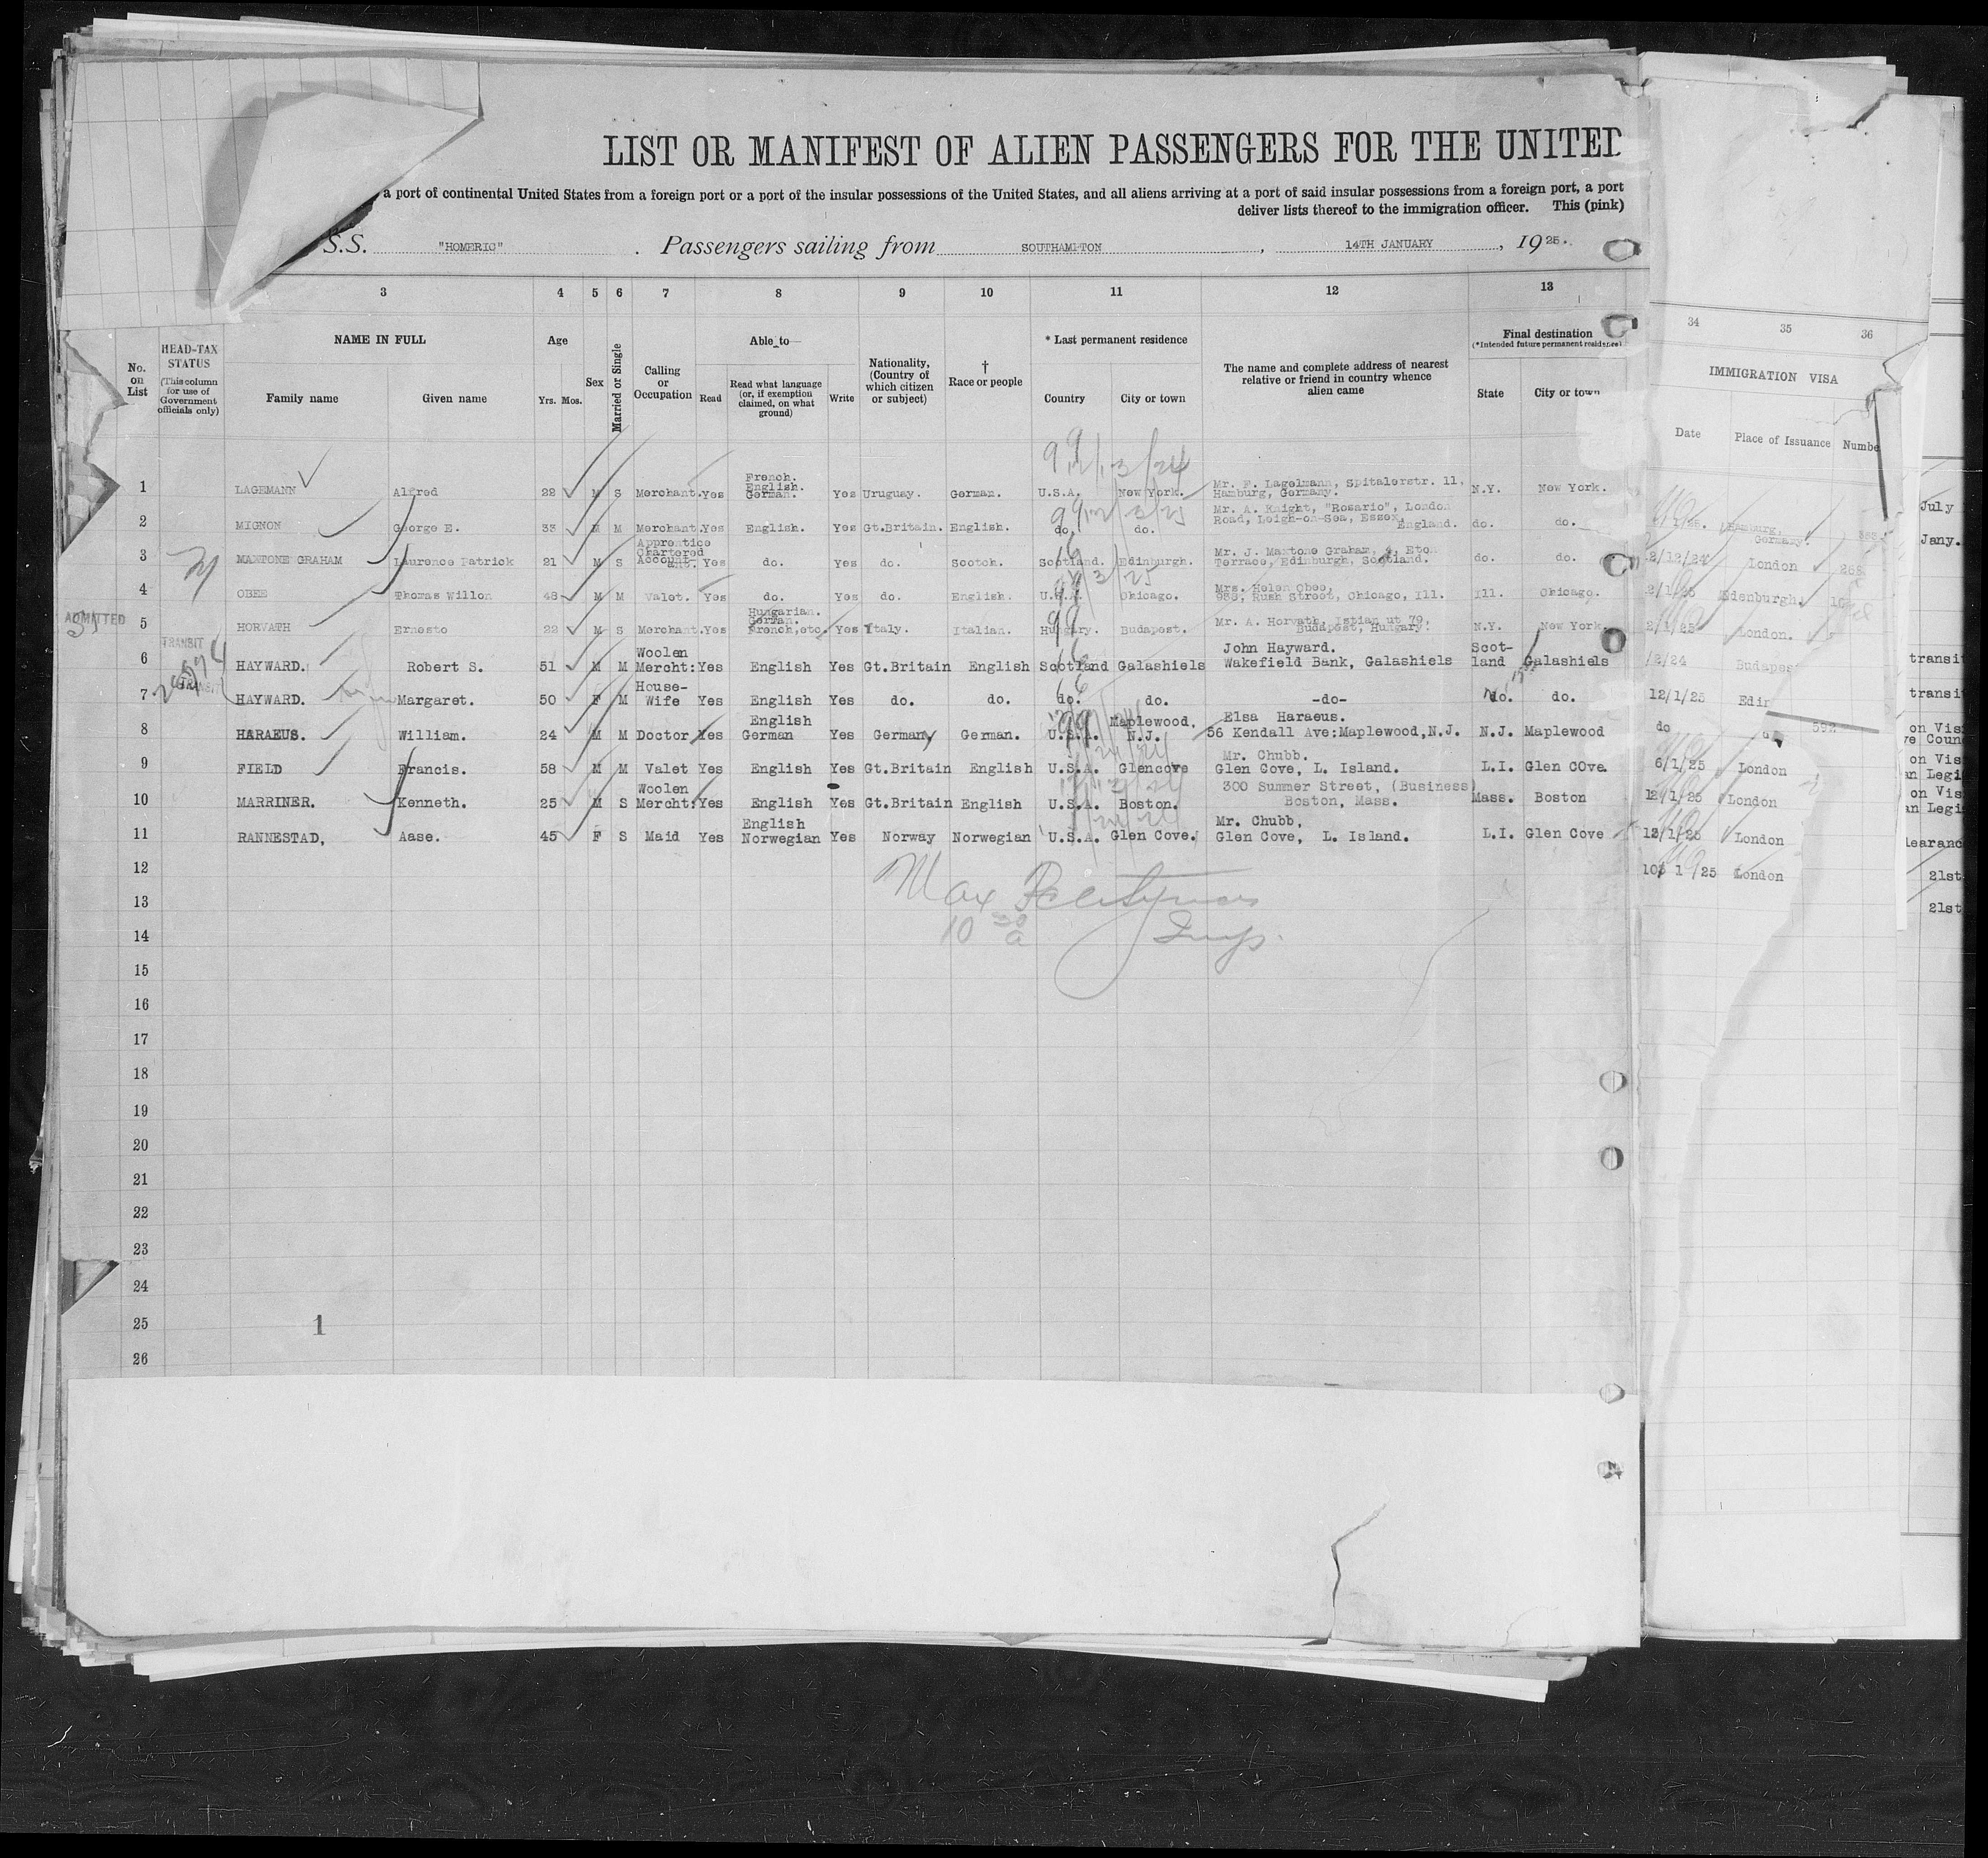 LIST OR MANIFEST OF ALIEN PASSENGERS FOR THE UNITED
a port of continental United States from a foreign port or a port of the insular possessions of the United States, and all aliens arriving at a port of said insular possessions from a foreign port, a port
deliver lists thereof to the immigration officer. This (pink)
S.S. "HOMERIC" . Passengers sailing from SOUTHAMPTON , 14TH JANUARY , 1925.
3 4 5 6 7 8 9 10 11 12 13
34 35 36
No. on List
HEAD-TAX STATUS (This column for use of Government officials only)
NAME IN FULL Family name Given name
Age Yrs. Mos.
Sex
Married or Single
Calling or Occupation
Able to— Read Read what language (or, if exemption claimed, on what ground) Write
Nationality, (Country of which citizen or subject)
† Race or people
* Last permanent residence Country City or town
The name and complete address of nearest relative or friend in country whence alien came
Final destination (*Intended future permanent residence) State City or town
IMMIGRATION VISA
Date Place of Issuance Numbe
1 LAGEMANN Alfred 22 M S Merchant. Yes French. English. German. Yes Uruguay. German. U.S.A. New York. Mr. F. Lagelmann, Spitalerstr. 11, Hamburg, Germany. N.Y. New York.
2 MIGNON George E. 33 M M Merchant. Yes English. Yes Gt.Britain. English. do. do. Mr. A. Knight, "Rosario", London Road, Leigh-on-Sea, Essex, England. do. do.
3 MAXTONE GRAHAM Laurence Patrick 21 M S Apprentice Chartered Account- ant. Yes do. Yes do. Scotch. Scotland. Edinburgh. Mr. J. Maxtone Graham, Eton Terrace, Edinburgh, Scotland. do. do.
4 OBEE Thomas Willon 48 M M Valet. Yes do. Yes do. English. U.S.A. Chicago. Mrs. Helen Obee, 933, Rush Street, Chicago, Ill. Ill. Chicago.
5 HORVATH Ernesto 22 M S Merchant. Yes Hungarian. German. French, etc. Yes Italy. Italian. Hungary. Budapest. Mr. A. Horvath, Istian ut 79, Budapest, Hungary. N.Y. New York
ADMITTED
TRANSIT
6 HAYWARD. Robert S. 51 M M Woolen Mercht: Yes English Yes Gt.Britain English Scotland Galashiels John Hayward. Wakefield Bank, Galashiels Scot- land Galashiels
7 HAYWARD. Margaret. 50 F M House- Wife Yes English Yes do. do. do. do. -do- do. do.
8 HARAEUS. William. 24 M M Doctor Yes English German Yes Germany German. U.S.A. Maplewood, N.J. Elsa Haraeus. 56 Kendall Ave:Maplewood,N.J. N.J. Maplewood
9 FIELD Francis. 58 M M Valet Yes English Yes Gt.Britain English U.S.A. Glencove Mr. Chubb. Glen Cove, L. Island. L.I. Glen COve.
10 MARRINER. Kenneth. 25 M S Woolen Mercht: Yes English Yes Gt.Britain English U.S.A. Boston. 300 Summer Street, (Business) Boston, Mass. Mass. Boston
11 RANNESTAD, Aase. 45 F S Maid Yes English Norwegian Yes Norway Norwegian U.S.A. Glen Cove. Mr. Chubb, Glen Cove, L. Island. L.I. Glen Cove
12
13
14
15
16
17
18
19
20
21
22
23
24
25
26
1
Max
Hamburg, Germany.
2/12/24 London
2/1/25 Edenburgh.
2/1/25 London.
/2/24 Budapes
12/1/25 Edin
do 592
6/1/25 London
12/1/25 London
13/1/25 London
London
July
Jany.
transit
transit
on Vis
ve Coun
on Vis
an Legi
on Vis
an Legi
learanc
21st
21st